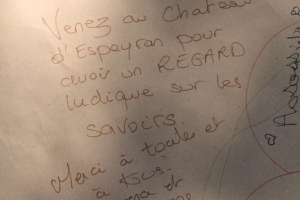 Venez au Chateau
d'Espeyran pour
avoir un REGARD
ludique sur les
savoirs.
Merci à toute et
à tous.
et